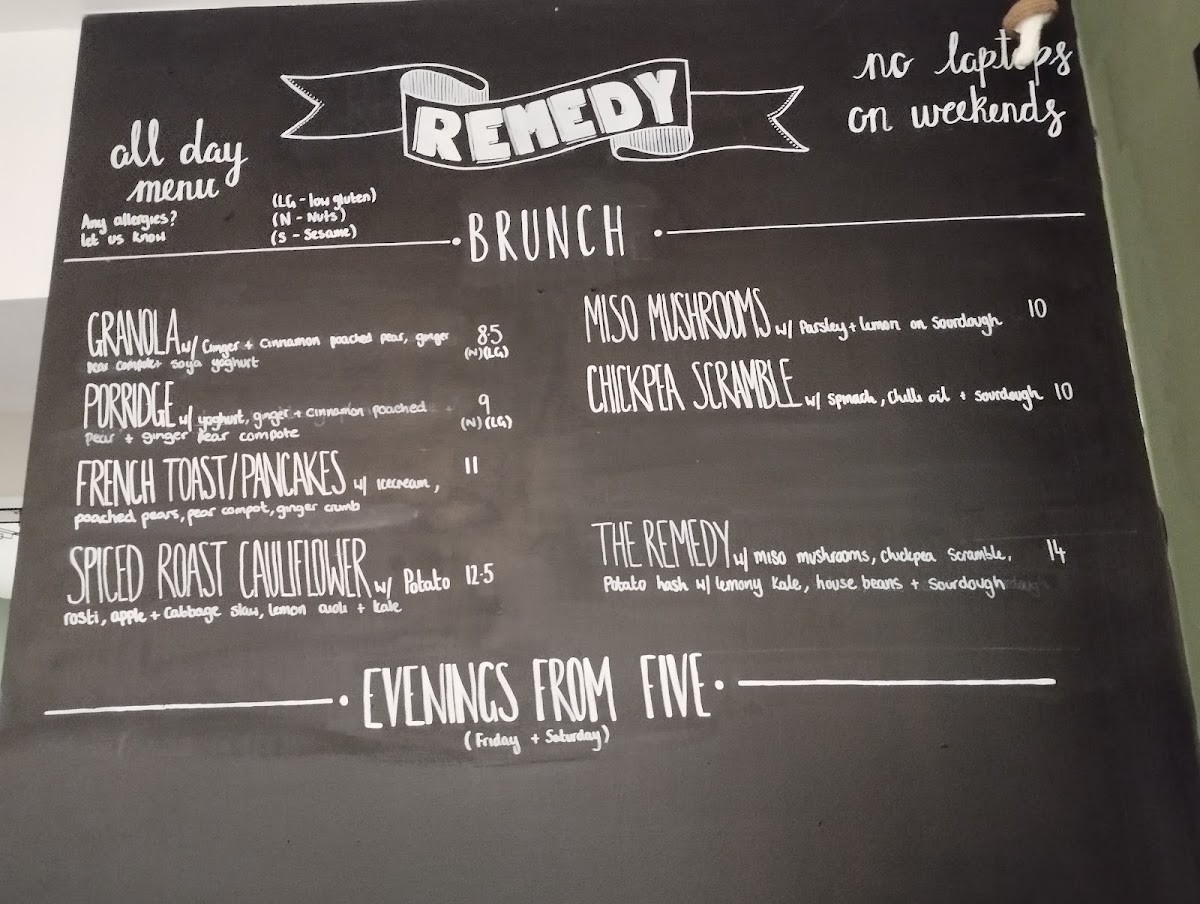 REMEDY
no laptops
on weekends
all day
menu
Any allergies?
let us know
(LG - low gluten)
(N - Nuts)
(S - Sesame)
BRUNCH
GRANOLA w/ Ginger + Cinnamon poached pear, ginger 8.5
pear compote + soya yoghurt (N)(LG)
PORRIDGE w/ yoghurt, ginger + cinnamon poached 9
pear + ginger pear compote (N)(LG)
FRENCH TOAST/PANCAKES w/ icecream, 11
poached pears, pear compot, ginger crumb
SPICED ROAST CAULIFLOWER w/ Potato 12.5
rosti, apple + Cabbage slaw, lemon aioli + kale
MISO MUSHROOMS w/ Parsley + lemon on Sourdough 10
CHICKPEA SCRAMBLE w/ spinach, chilli oil + sourdough 10
THE REMEDY w/ miso mushrooms, chickpea Scramble, 14
Potato hash w/ lemony kale, house beans + Sourdough
EVENINGS FROM FIVE
(Friday + Saturday)